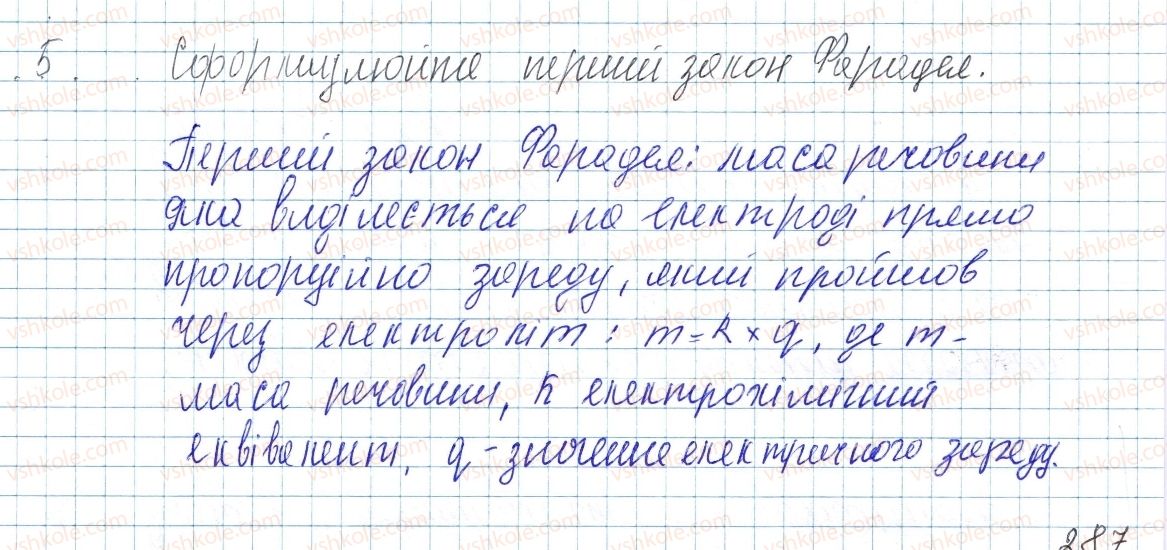 5. Сформулюйте перший закон Фарадея.
Перший закон Фарадея: маса речовини
яка виділяється на електроді прямо
пропорційно заряду, який пройшов
через електроліт: m = k × q, де m -
маса речовини, k електрохімічний
еквівалент, q - значення електричного заряду.
287